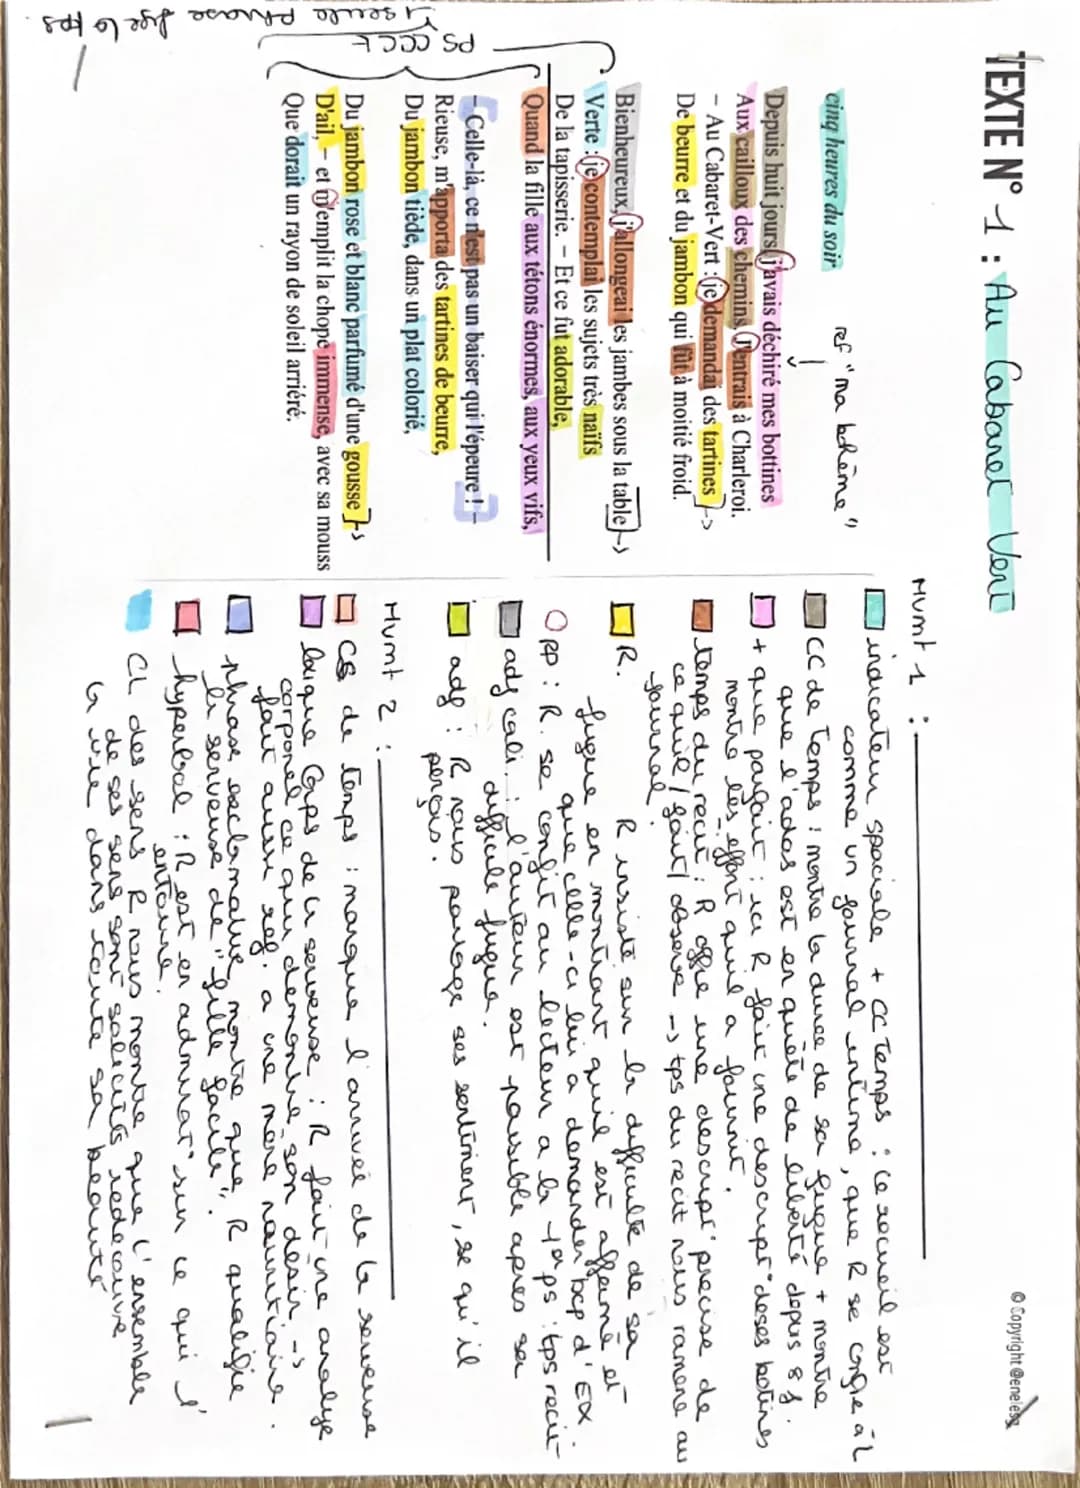 TEXTE N° 1 : Au Cabaret Vert
© Copyright @enelesg
cinq heures du soir
ref "ma bohème"
Depuis huit jours, j'avais déchiré mes bottines
Aux cailloux des chemins. J'entrais à Charleroi.
- Au Cabaret-Vert : je demandai des tartines
De beurre et du jambon qui fût à moitié froid.
Bienheureux, j'allongeai les jambes sous la table
Verte : je contemplai les sujets très naïfs
De la tapisserie. - Et ce fut adorable,
Quand la fille aux tétons énormes, aux yeux vifs,
- Celle-là, ce n'est pas un baiser qui l'épeure ! -
Rieuse, m'apporta des tartines de beurre,
Du jambon tiède, dans un plat colorié,
Du jambon rose et blanc parfumé d'une gousse
D'ail, - et m'emplit la chope immense, avec sa mouss
Que dorait un rayon de soleil arriéré.
PS CCCL
1 seule phrase fige le tps
Mvmt 1 :
indicateur spaciale + CC temps : ce recueil est
comme un journal intime, que R se confie à L
CC de temps : montre la durée de sa fugue + montre
que l'ados est en quête de liberté depuis 8 j.
+ que parfait : ici R fait une descript° de ses botines
montre les effort quil a fournit.
temps du récit : R offre une descript° precise de
ce quil / fait / observe -> tps du recit nous ramène au
journal.
R. R insiste sur la difficulté de sa
fugue en montrant quil est affamé et
que celle-ci lui a demander bcp d'EX.
PP : R. se confit au lecteur a la 1ère ps : tps recit
adj cali : l'auteur est paisible apres sa
difficile fugue.
adj : R nous partage ses sentiment, se qu'il
perçois.
Mvmt 2 :
CC de temps : marque l'arrivée de la serveuse
lexique Corps de la serveuse : R fait une analyse
corporel ce qui démontre son désir ->
fait aussi ref. a une mère nourricière.
phrase exclamative, montre que R qualifie
la serveuse de "fille facile".
hyperbol : R est en admirat° sur ce qui l'
entoure.
CL des sens R nous montre que l'ensemble
de ses sens sont solicités redécouvre
la vie dans toute sa beauté